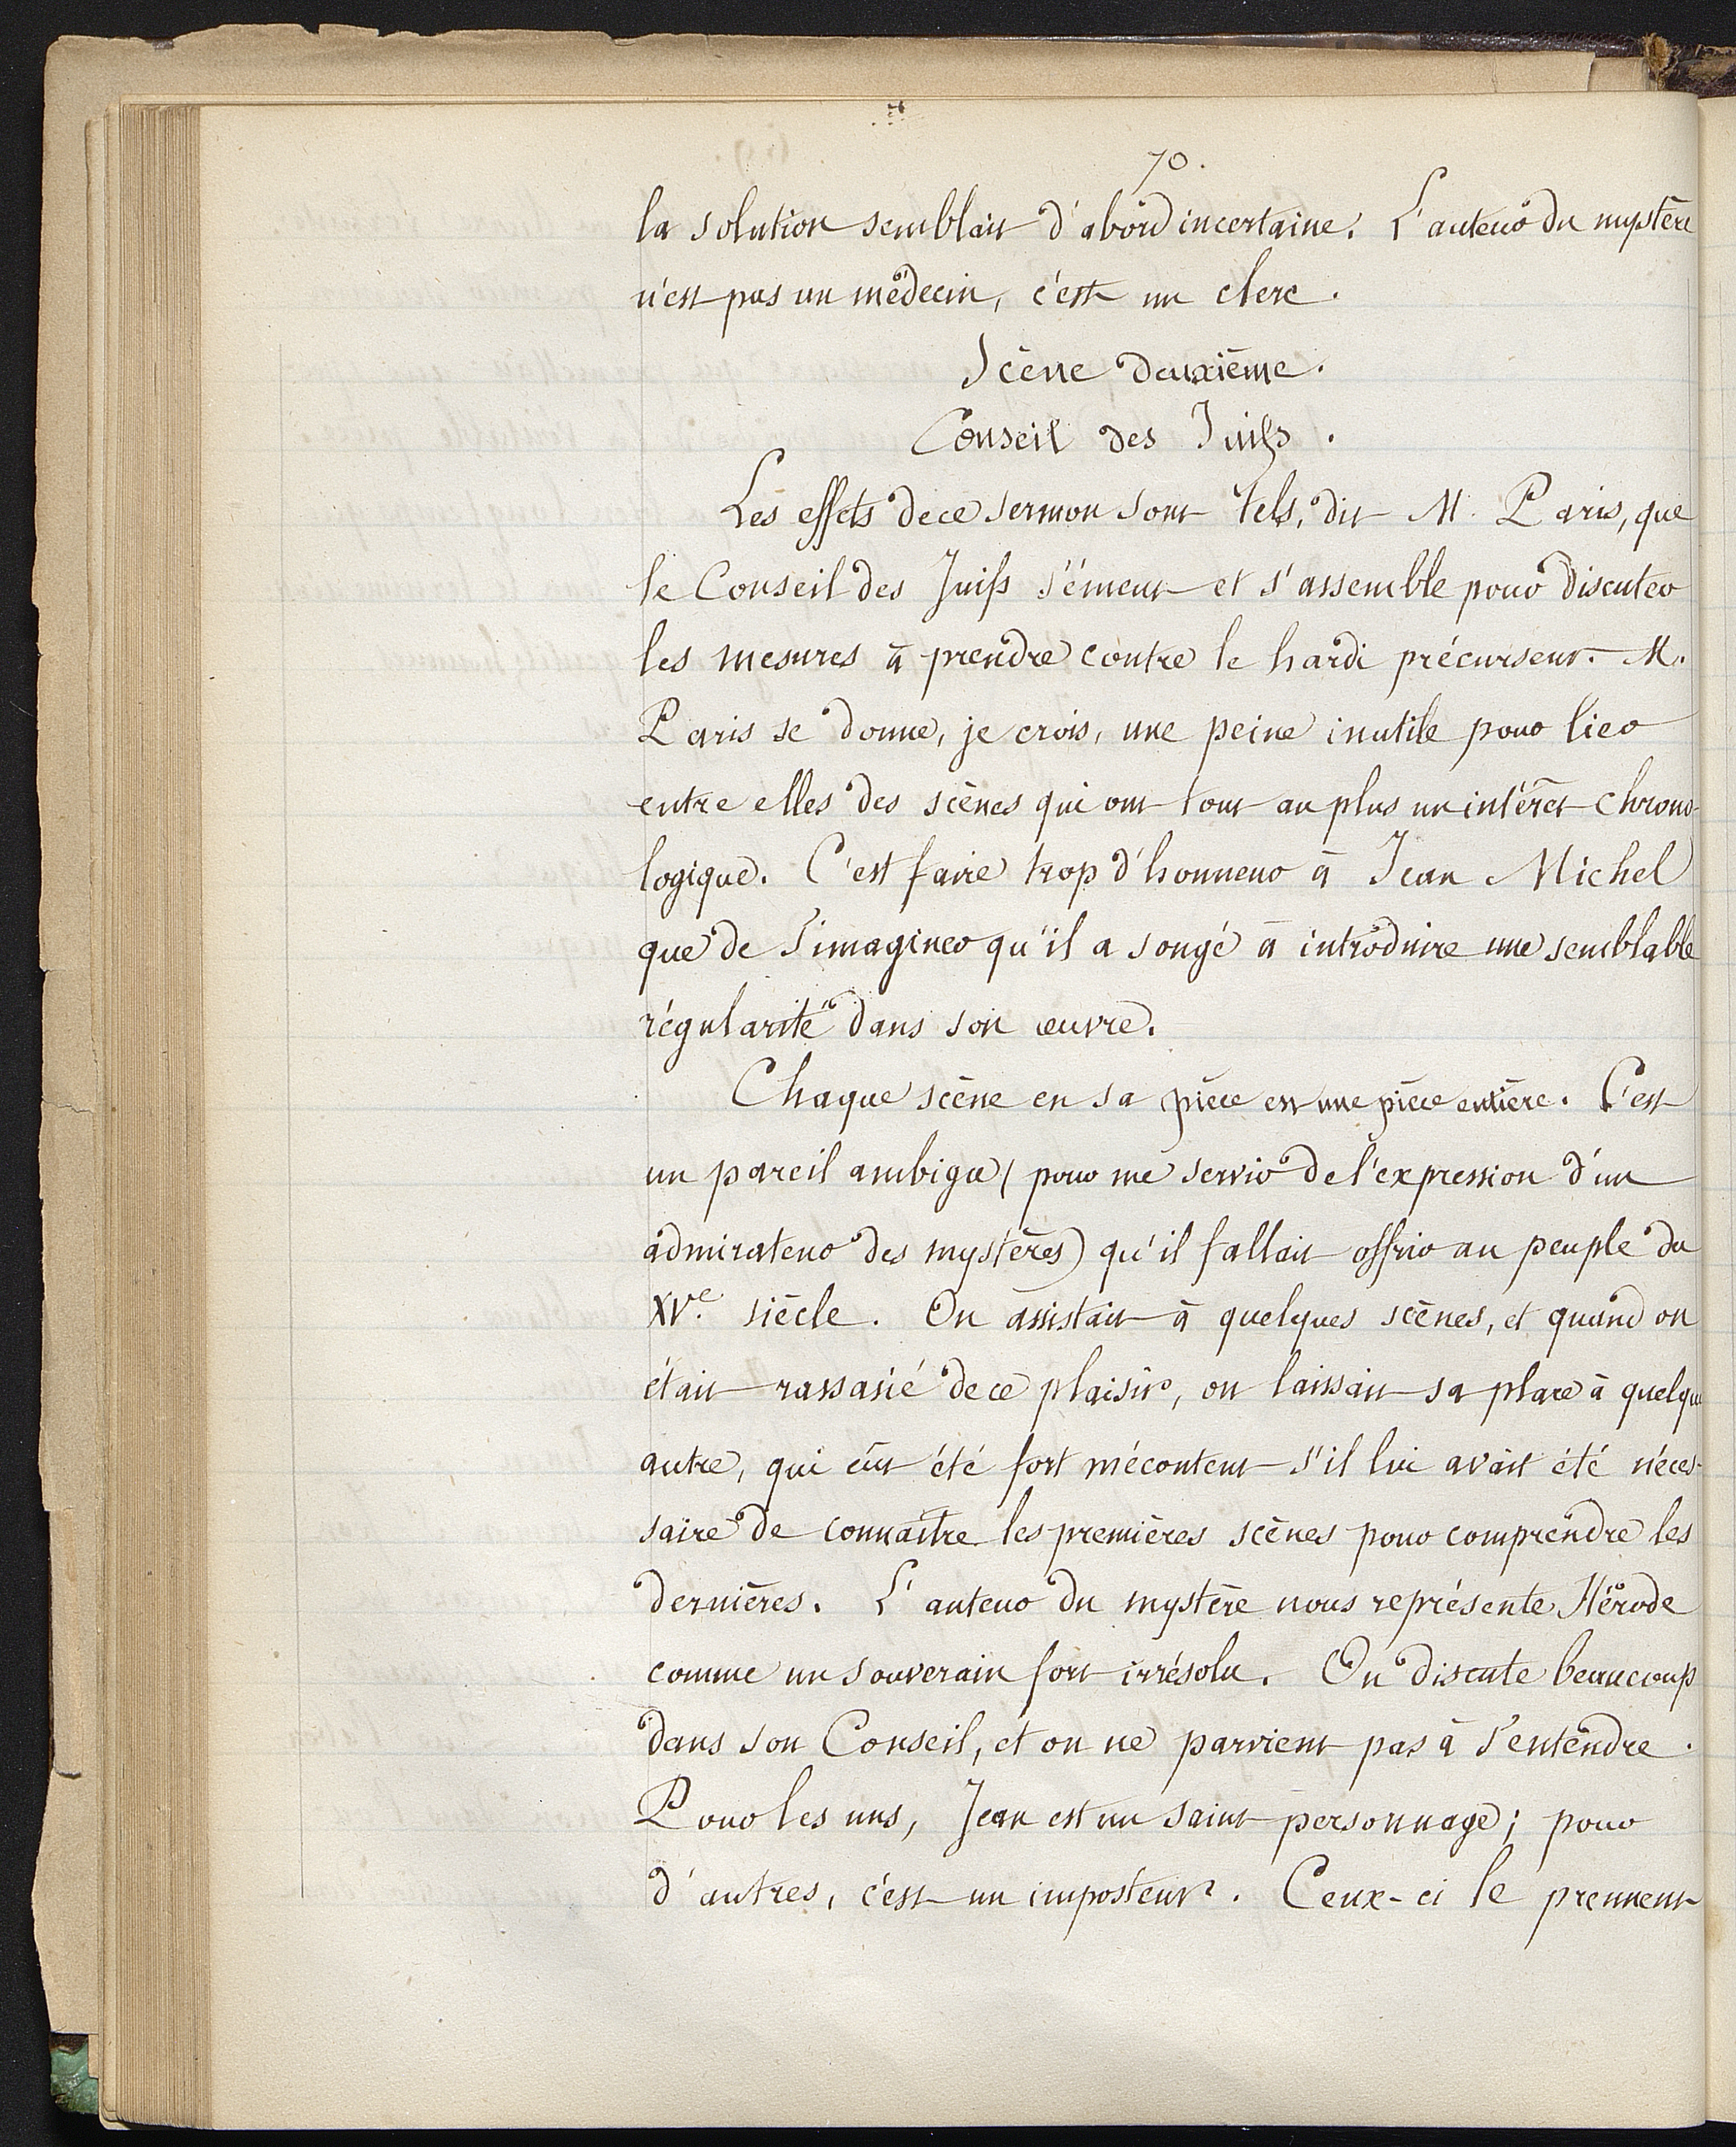 70.
la solution semblait d'abord incertaine. L'auteur du mystère
n'est pas un médecin, c'est un clerc.
Scène deuxième.
Conseil des Juifs.
Les effets de ce sermon sont tels, dit M. Paris, que
le Conseil des Juifs s'émeut et s'assemble pour discuter
les mesures à prendre contre le hardi précurseur. M.
Paris se donne, je crois, une peine inutile pour lier
entre elles des scènes qui ont tout au plus un intérêt chrono-
logique. C'est faire trop d'honneur à Jean Michel
que de s'imaginer qu'il a songé à introduire une semblable
régularité dans son œuvre.
Chaque scène en sa pièce est une pièce entière. C'est
un pareil ambigu (pour me servir de l'expression d'un
admirateur des mystères) qu'il fallait offrir au peuple du
XVe. siècle. On assistait à quelques scènes, et quand on
était rassasié de ce plaisir, on laissait sa place à quelque
autre, qui eût été fort mécontent s'il lui avait été néces-
saire de connaître les premières scènes pour comprendre les
dernières. L'auteur du mystère nous représente Hérode
comme un souverain fort irrésolu. On discute beaucoup
dans son Conseil, et on ne parvient pas à s'entendre.
Pour les uns, Jean est un saint personnage; pour
d'autres, c'est un imposteur. Ceux-ci le prennent